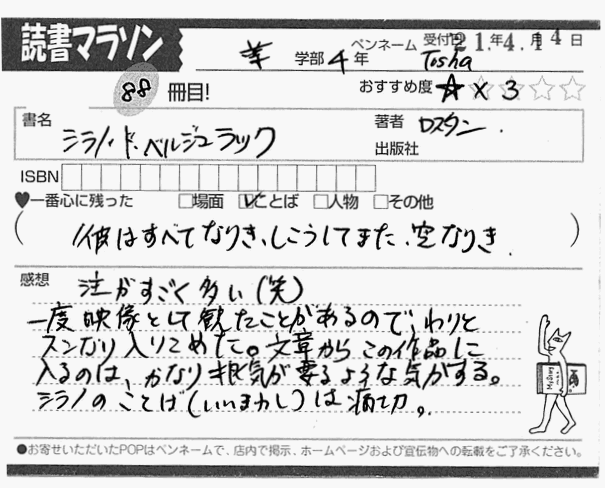 読書マラソン
学部 4年 ペンネーム Tosha 受付日 21.年4.月14日
88 冊目!
おすすめ度 ★ x 3 ☆☆
書名 シラノ・ド・ベルジュラック
著者 ロスタン.
出版社
ISBN
♥一番心に残った □場面 ☑ことば □人物 □その他
(彼はすべてなりき、しこうしてまた、空なりき.)
感想 注がすごく多い(笑)
一度映像として観たことがあるので、わりと
スンなり入りこめた。文章からこの作品に
入るのは、かなり根気が要るような気がする。
シラノのことば(いいまわし)は痛切。
●お寄せいただいたPOPはペンネームで、店内で掲示、ホームページおよび宣伝物への転載をご了承ください。